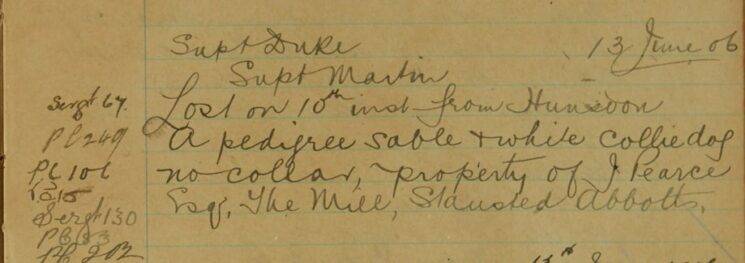 Supt Duke 13 June 06
Supt Martin
Lost on 10th inst from Hunsdon
A pedigree sable + white collie dog
no collar, property of J Pearce
Esq, The Mill, Stansted Abbotts.
Sergt 67
PC 249
PC 106
Sergt 130
PC 202